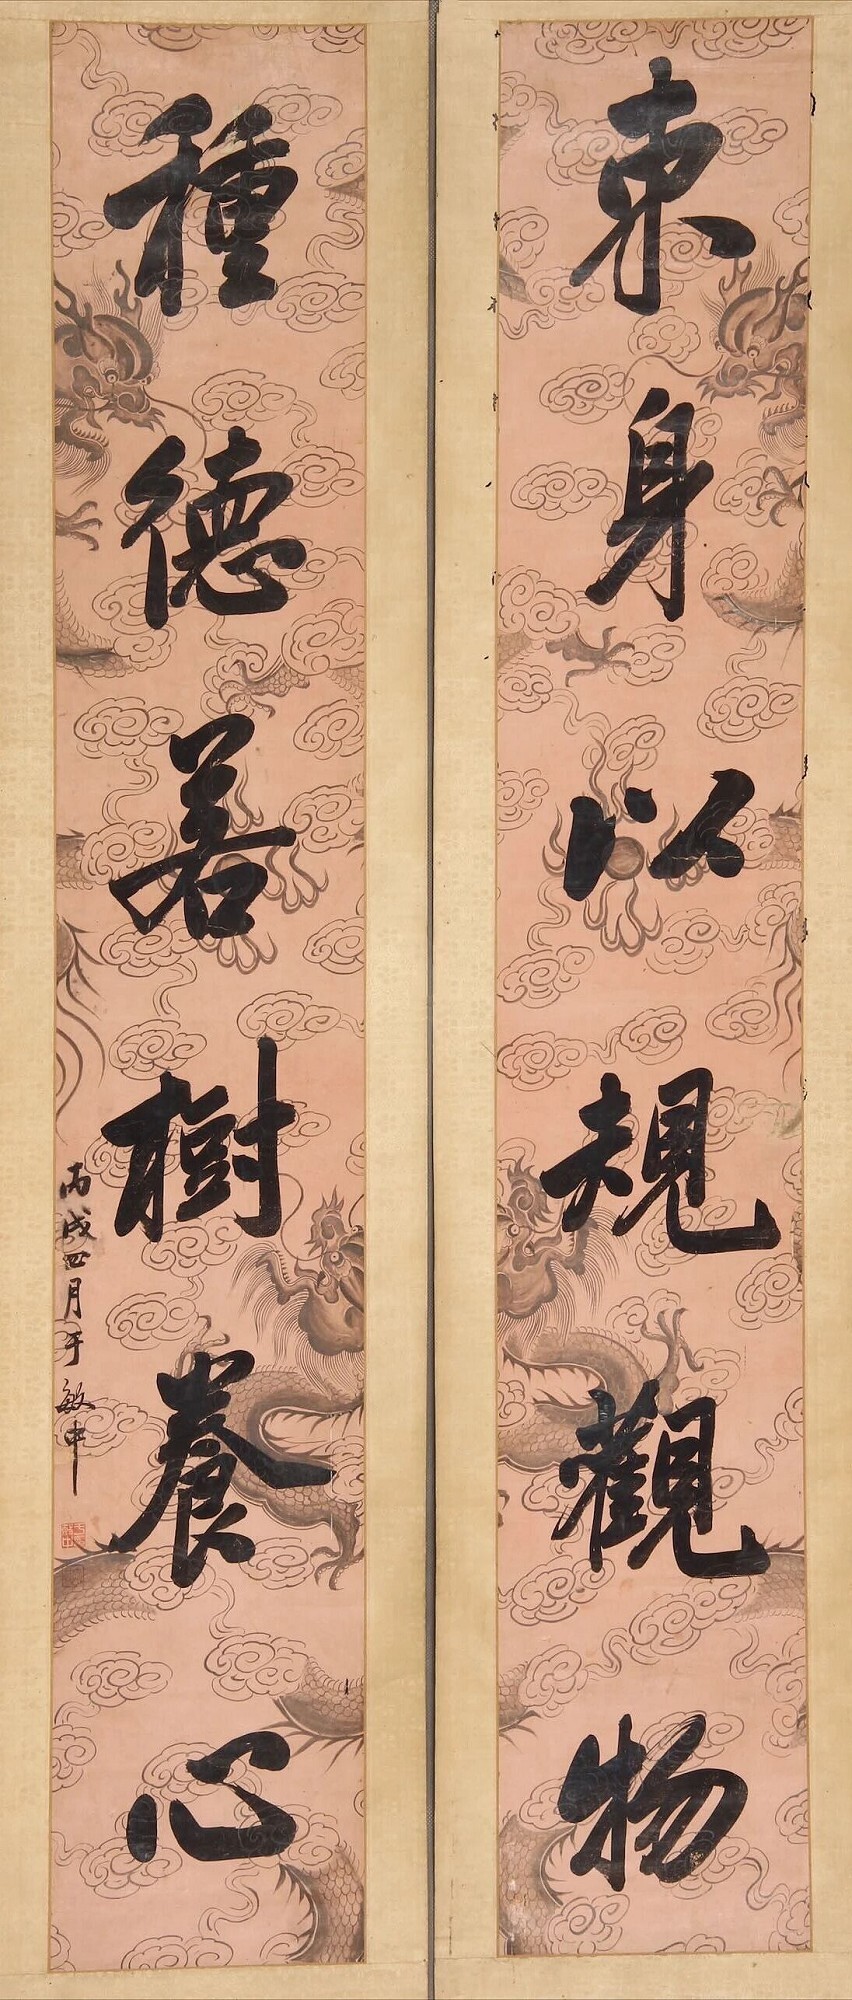 束身以規觀物
種德若樹養心
丙戌四月于敏中